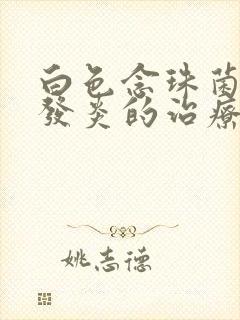 白色念珠菌
發炎的治療
姚志德